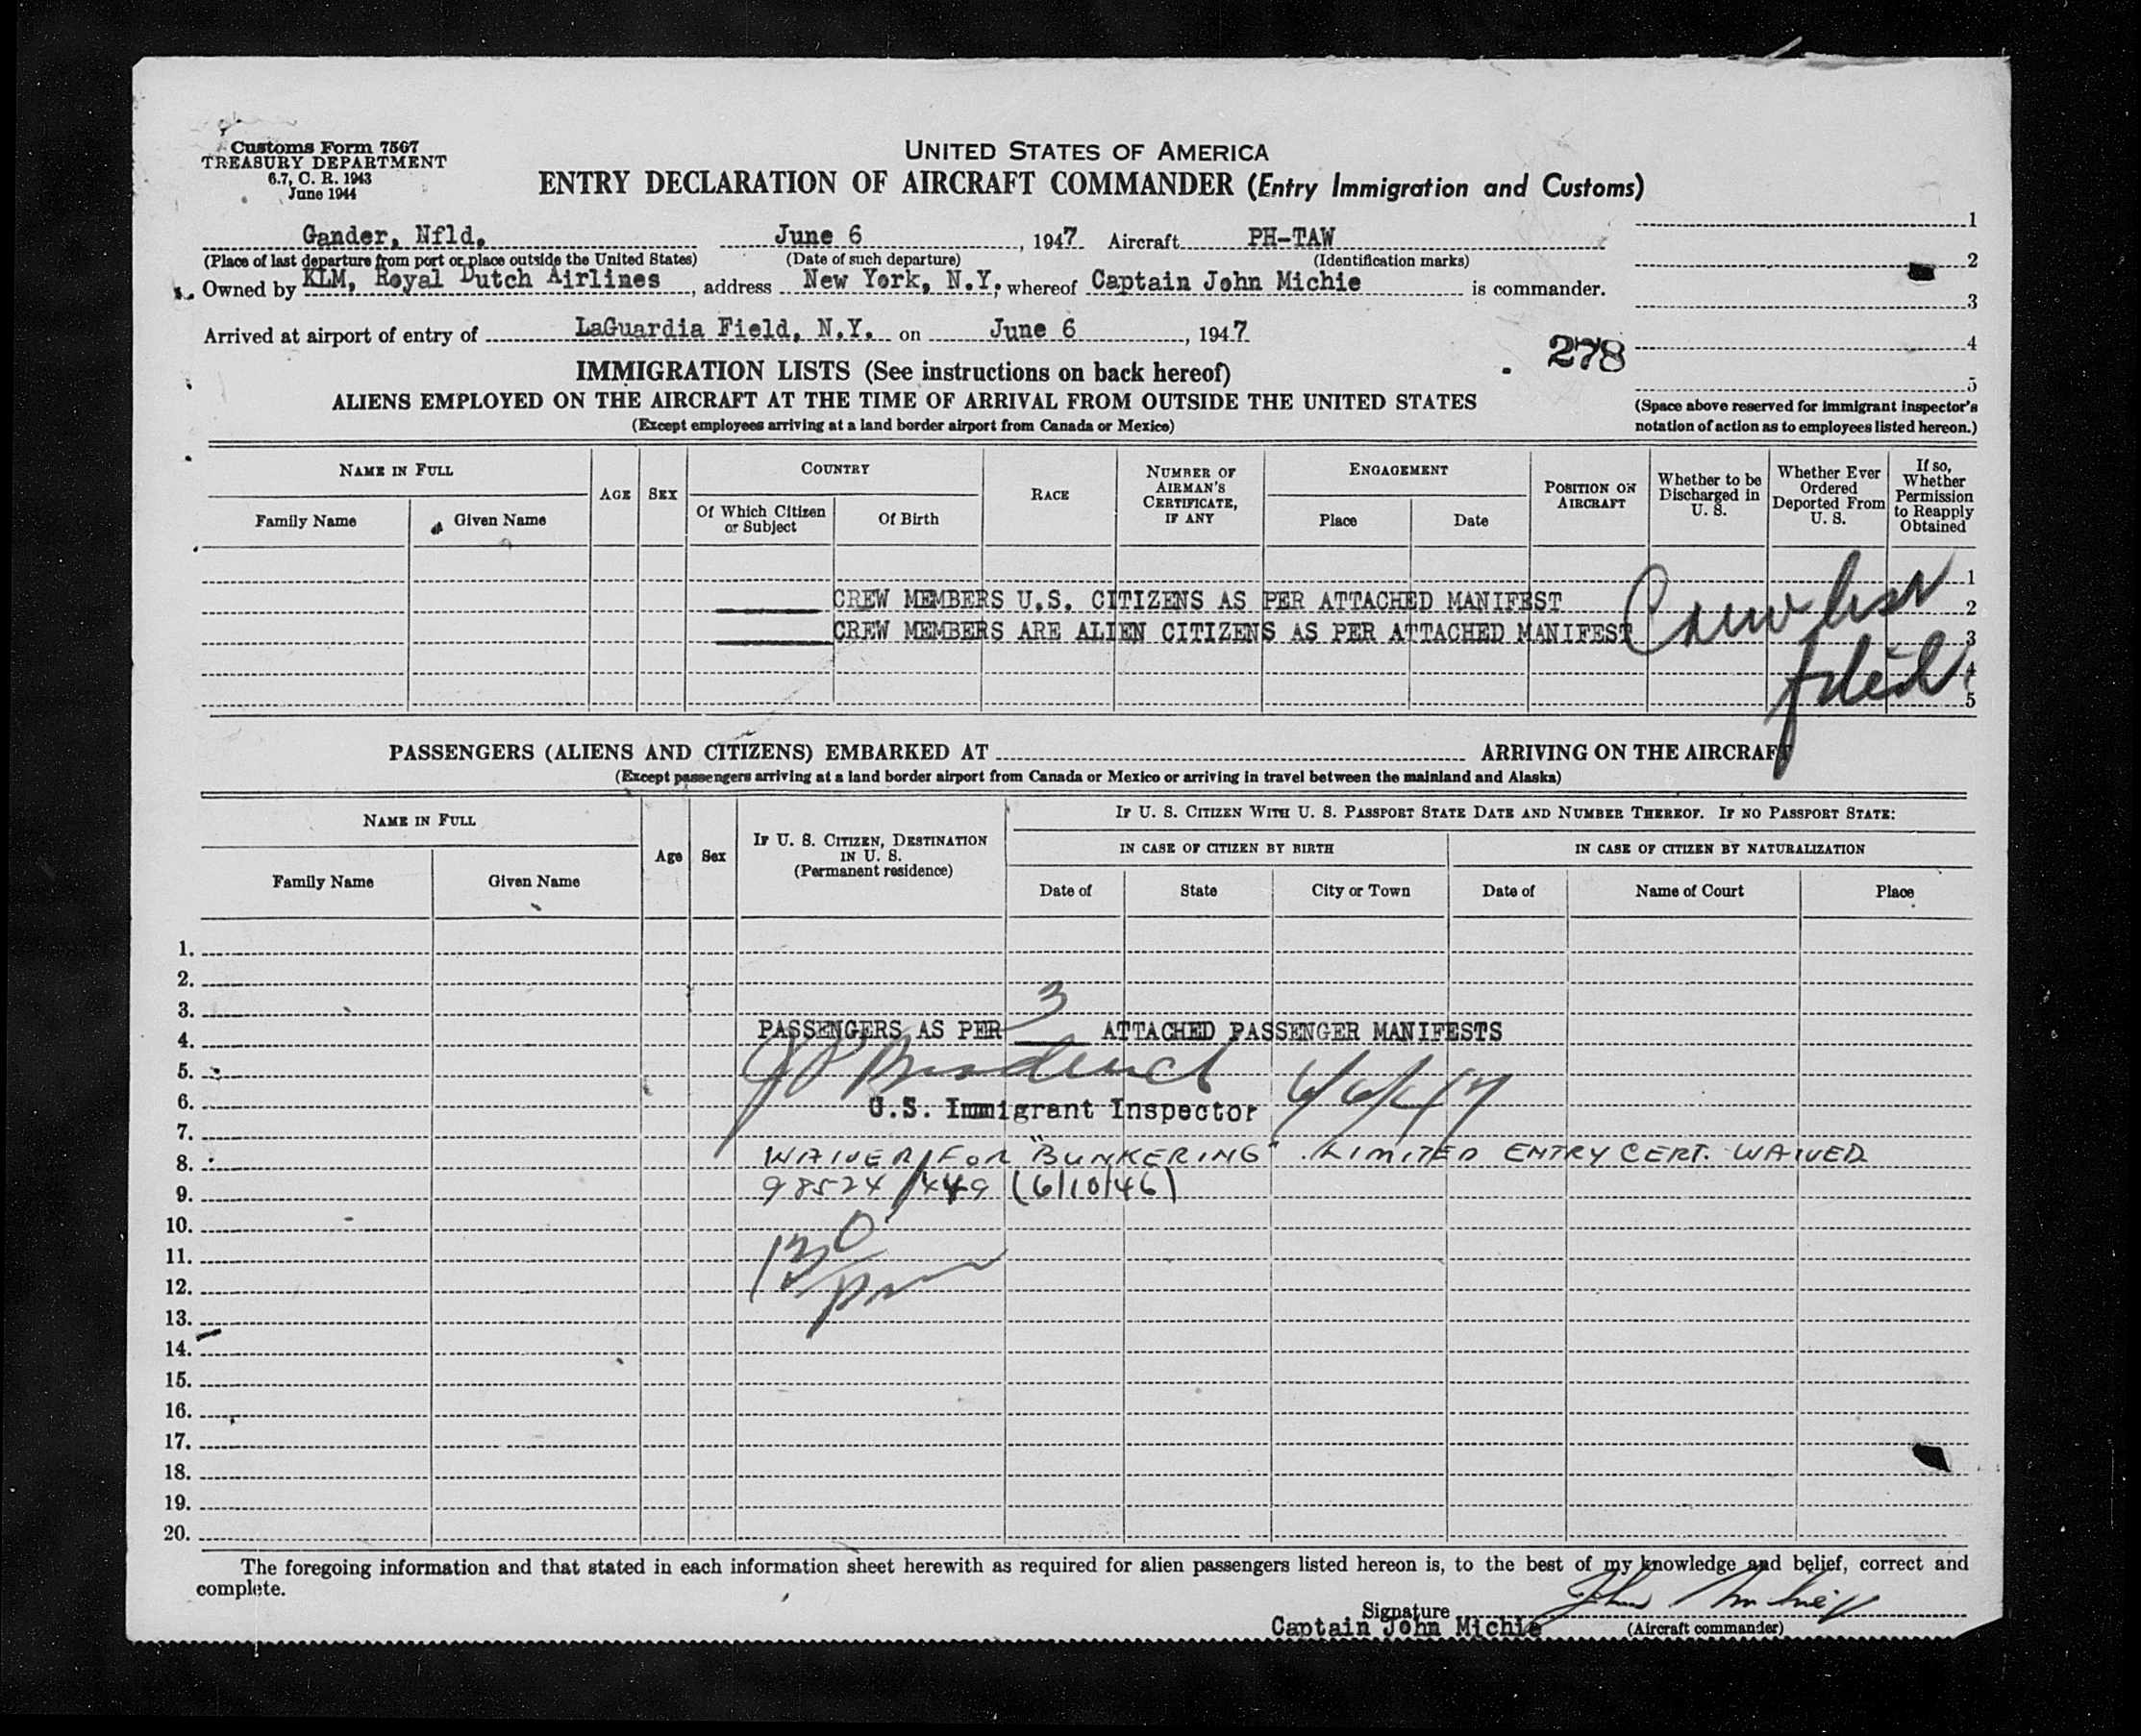 Customs Form 7507
TREASURY DEPARTMENT
6.7, C. R. 1943
June 1944
UNITED STATES OF AMERICA
ENTRY DECLARATION OF AIRCRAFT COMMANDER (Entry Immigration and Customs)
Gander, Nfld. June 6, 1947 Aircraft PH-TAW
(Place of last departure from port or place outside the United States) (Date of such departure) (Identification marks)
Owned by KLM, Royal Dutch Airlines, address New York, N.Y. whereof Captain John Michie is commander.
Arrived at airport of entry of LaGuardia Field, N.Y. on June 6, 1947
278
1
2
3
4
5
(Space above reserved for immigrant inspector's
notation of action as to employees listed hereon.)
IMMIGRATION LISTS (See instructions on back hereof)
ALIENS EMPLOYED ON THE AIRCRAFT AT THE TIME OF ARRIVAL FROM OUTSIDE THE UNITED STATES
(Except employees arriving at a land border airport from Canada or Mexico)
NAME IN FULL
Family Name
Given Name
AGE
SEX
COUNTRY
Of Which Citizen or Subject
Of Birth
RACE
NUMBER OF AIRMAN'S CERTIFICATE, IF ANY
ENGAGEMENT
Place
Date
POSITION ON AIRCRAFT
Whether to be Discharged in U. S.
Whether Ever Ordered Deported From U. S.
If so, Whether Permission to Reapply Obtained
1
CREW MEMBERS U.S. CITIZENS AS PER ATTACHED MANIFEST 2
CREW MEMBERS ARE ALIEN CITIZENS AS PER ATTACHED MANIFEST 3
4
5
Crew list
filed
PASSENGERS (ALIENS AND CITIZENS) EMBARKED AT ARRIVING ON THE AIRCRAFT
(Except passengers arriving at a land border airport from Canada or Mexico or arriving in travel between the mainland and Alaska)
NAME IN FULL
Family Name
Given Name
Age
Sex
IF U. S. CITIZEN, DESTINATION IN U. S.
(Permanent residence)
IF U. S. CITIZEN WITH U. S. PASSPORT STATE DATE AND NUMBER THEREOF. IF NO PASSPORT STATE:
IN CASE OF CITIZEN BY BIRTH
IN CASE OF CITIZEN BY NATURALIZATION
Date of
State
City or Town
Date of
Name of Court
Place
1.
2.
3.
4. PASSENGERS AS PER 3 ATTACHED PASSENGER MANIFESTS
5.
6. U.S. Immigrant Inspector 6/6/47
7.
8. WAIVER FOR "BUNKERING" LIMITED ENTRY CERT. WAIVED
9. 98524/449 (6/10/46)
10.
11. 130
12. pm
13.
14.
15.
16.
17.
18.
19.
20.
The foregoing information and that stated in each information sheet herewith as required for alien passengers listed hereon is, to the best of my knowledge and belief, correct and
complete.
Signature John Michie
Captain John Michie (Aircraft commander)